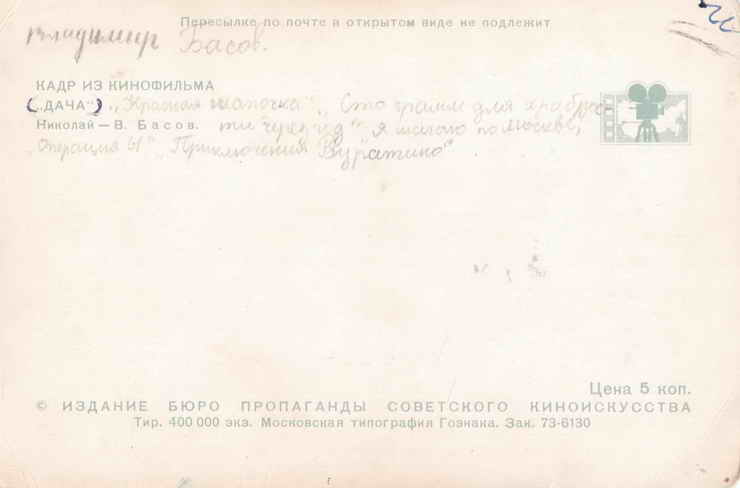 Пересылке по почте в открытом виде не подлежит
Владимир Басов.
КАДР ИЗ КИНОФИЛЬМА
(„ДАЧА“) „Красная шапочка“ „Сто грамм для храброс-
Николай — В. Басов. ти" "Я шагаю по Москве,
„Операция Ы" „Приключения Буратино"
Цена 5 коп.
© ИЗДАНИЕ БЮРО ПРОПАГАНДЫ СОВЕТСКОГО КИНОИСКУССТВА
Тир. 400 000 экз. Московская типография Гознака. Зак. 73-6130